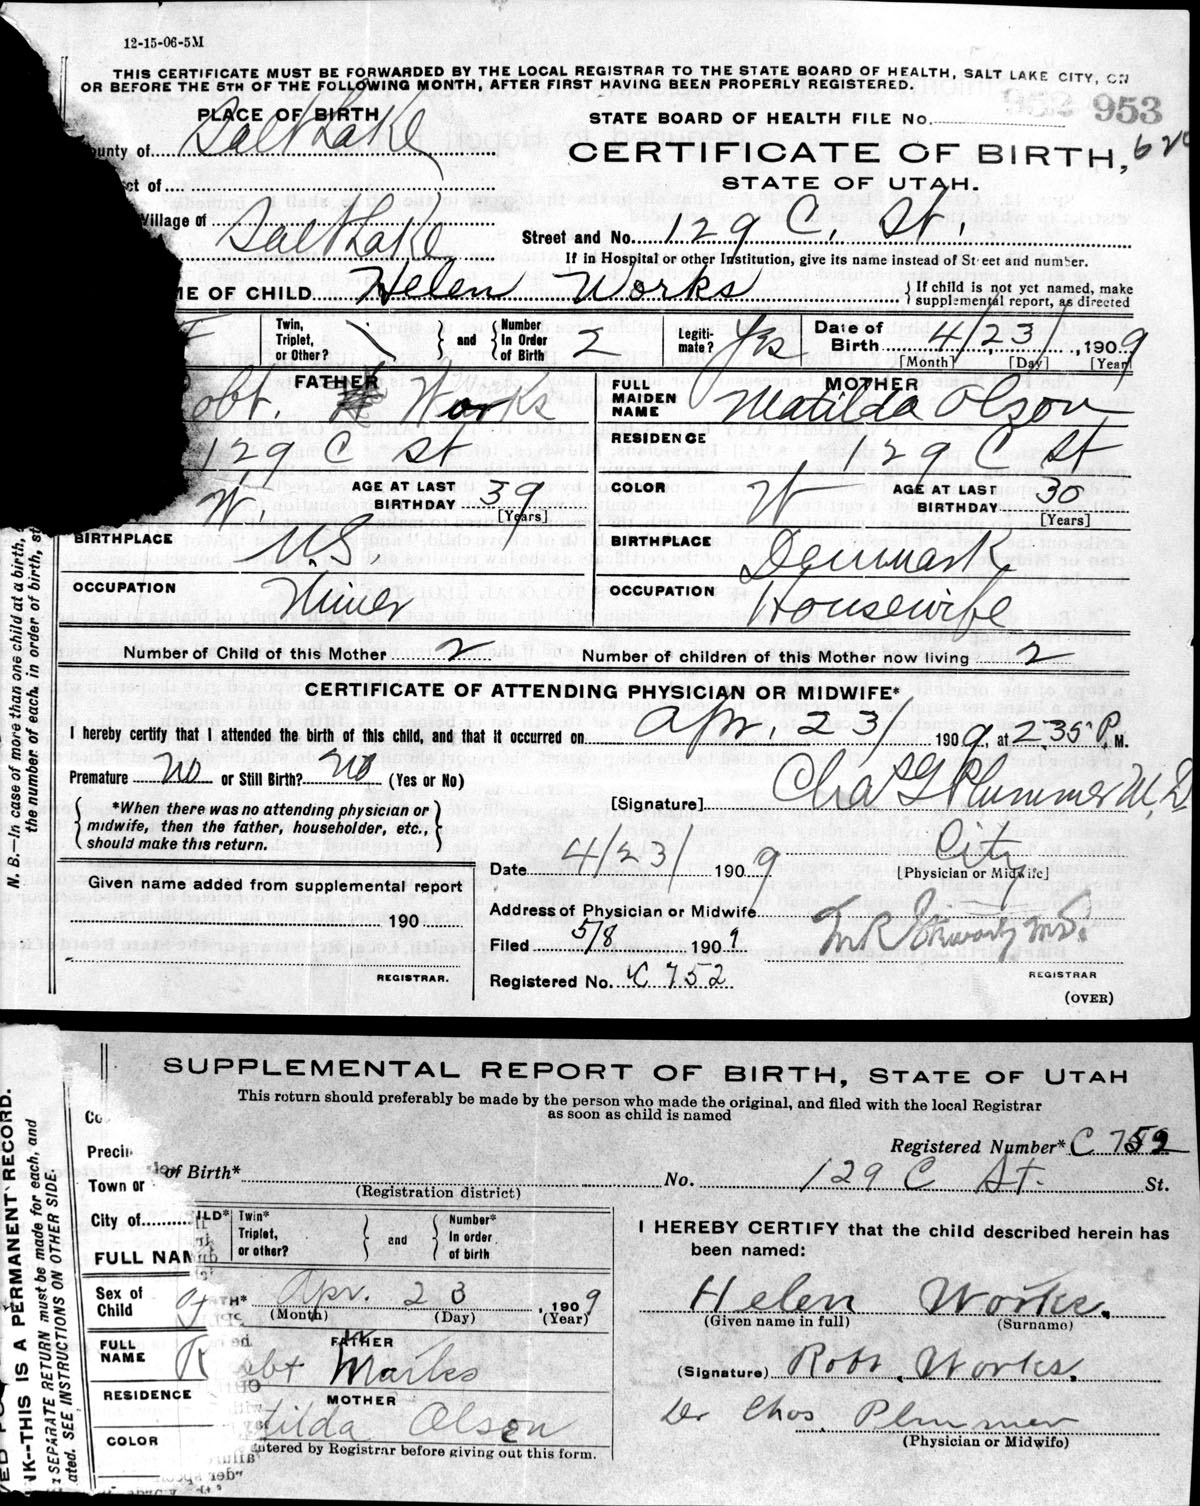 12-15-06-5M
THIS CERTIFICATE MUST BE FORWARDED BY THE LOCAL REGISTRAR TO THE STATE BOARD OF HEALTH, SALT LAKE CITY, ON
OR BEFORE THE 5TH OF THE FOLLOWING MONTH, AFTER FIRST HAVING BEEN PROPERLY REGISTERED.
PLACE OF BIRTH
STATE BOARD OF HEALTH FILE No. 953 953
ounty of Salt Lake
CERTIFICATE OF BIRTH,
STATE OF UTAH.
ct of
Village of Salt Lake
Street and No. 129 C. St.
If in Hospital or other Institution, give its name instead of Street and number.
ME OF CHILD Helen Works
{ If child is not yet named, make
supplemental report, as directed
Twin, Triplet, or Other? } and { Number In Order of Birth 2
Legiti-mate? Yes
Date of Birth 4/23/, 1909
[Month] [Day] [Year]
FATHER
obt. Works
FULL MAIDEN NAME
MOTHER
Matilda Olson
129 C St
RESIDENCE 129 C St
W. AGE AT LAST BIRTHDAY 39 [Years]
COLOR W AGE AT LAST BIRTHDAY 30 [Years]
BIRTHPLACE U.S.
BIRTHPLACE Denmark
OCCUPATION Miner
OCCUPATION Housewife
Number of Child of this Mother 2
Number of children of this Mother now living 2
CERTIFICATE OF ATTENDING PHYSICIAN OR MIDWIFE*
I hereby certify that I attended the birth of this child, and that it occurred on Apr. 23/ 1909, at 2.35 P.M.
Premature no or Still Birth? no (Yes or No)
[Signature] Chas G Plummer M.D
{ *When there was no attending physician or
midwife, then the father, householder, etc.,
should make this return. }
Date 4/23/ 1909
City
[Physician or Midwife]
Given name added from supplemental report
190
REGISTRAR.
Address of Physician or Midwife
Filed 5/8 1909
Registered No. C 752
REGISTRAR
(OVER)
N. B.—In case of more than one child at a birth,
the number of each, in order of birth, s
SUPPLEMENTAL REPORT OF BIRTH, STATE OF UTAH
This return should preferably be made by the person who made the original, and filed with the local Registrar
as soon as child is named
Co
Registered Number* C 752
Precin
of Birth*
(Registration district)
No. 129 C St. St.
Town or
City of
ILD* Twin* Triplet, or other? } and { Number* In order of birth
FULL NAM
I HEREBY CERTIFY that the child described herein has
been named:
Sex of Child F
TH* Apr. 23, 1909
(Month) (Day) (Year)
Helen Works.
(Given name in full) (Surname)
FULL NAME
FATHER
R
(Signature) Robt. Works.
RESIDENCE
MOTHER
tilda Olsen
Dr Chos. Plummer
(Physician or Midwife)
COLOR
ntered by Registrar before giving out this form.
NK—THIS IS A PERMANENT RECORD.
SEPARATE RETURN must be made for each, and
ated. SEE INSTRUCTIONS ON OTHER SIDE.